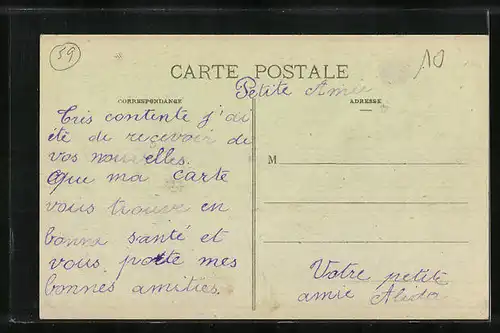 59
10
CARTE POSTALE
Petite Amie
CORRESPONDANCE
ADRESSE
Très contente j'ai
été de reçevoir de
vos nouvelles.
Que ma carte
vous trouve en
bonne santé et
vous porte mes
bonnes amitiés.
M
Votre petite
amie